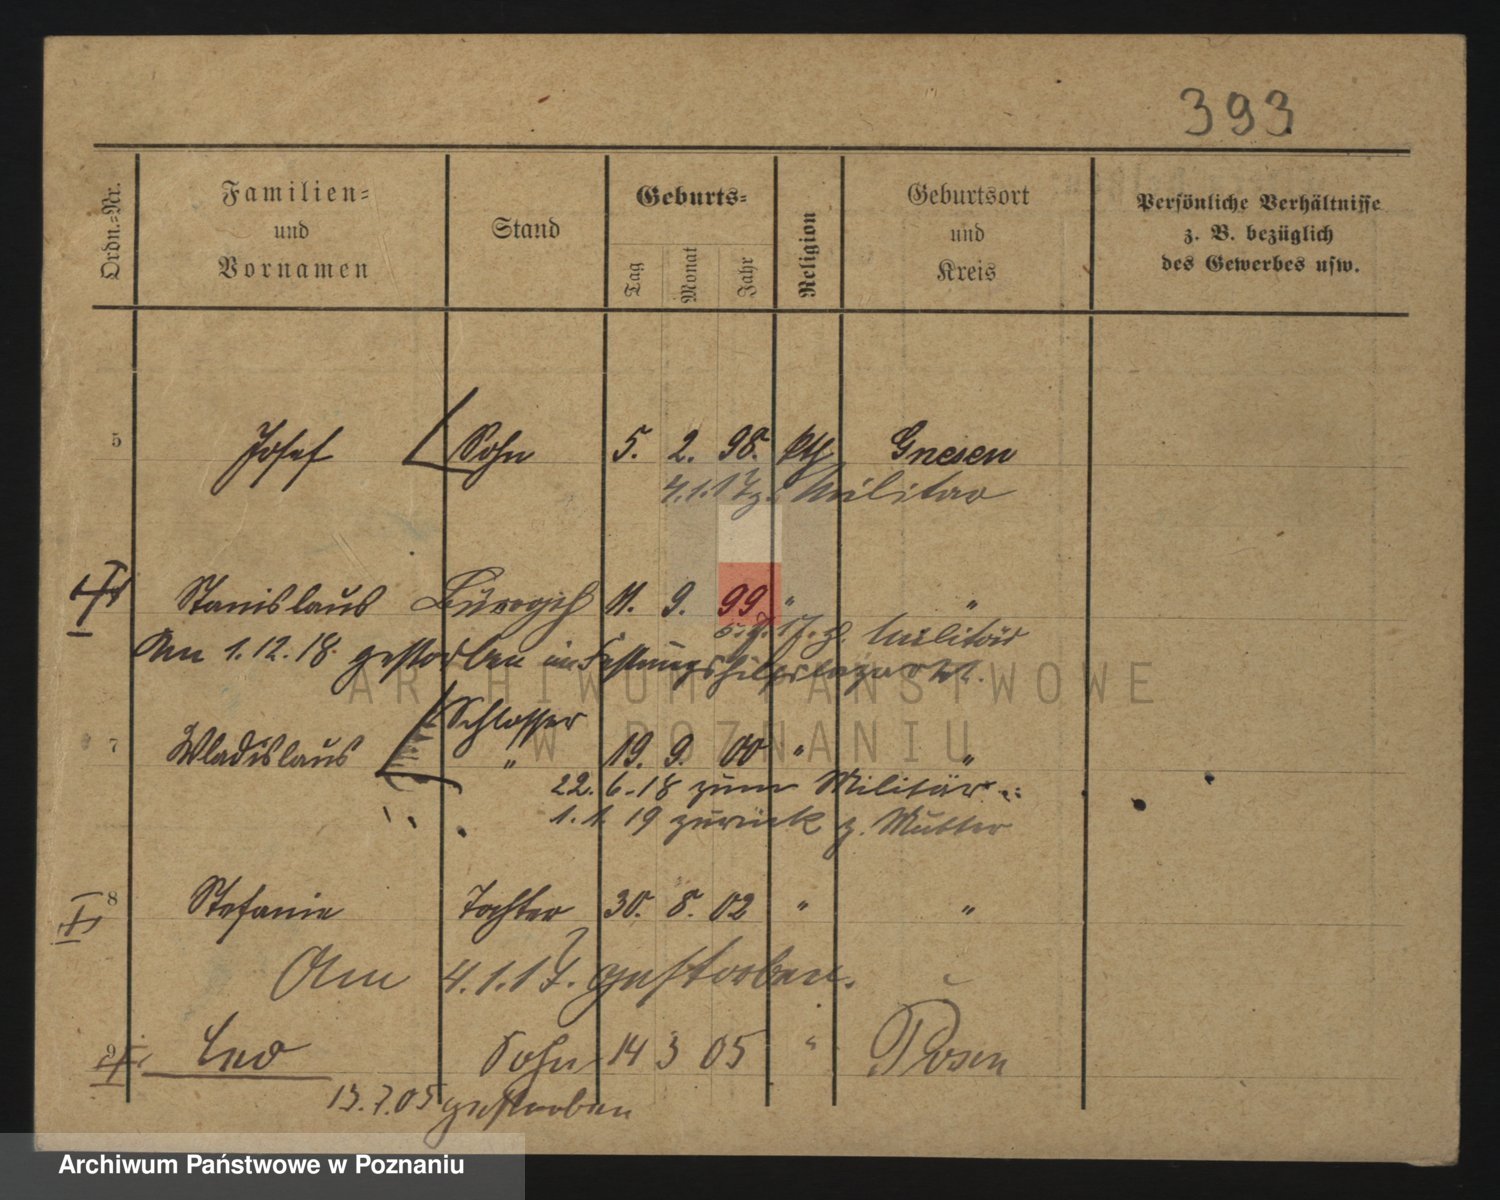 393
Ordn.-Nr.
Familien-
und
Vornamen
Stand
Geburts-
Tag
Monat
Jahr
Religion
Geburtsort
und
Kreis
Persönliche Verhältnisse
z. B. bezüglich
des Gewerbes usw.
5 Josef Sohn 5. 2. 98. kth Gnesen
4.1.17 z. Militär
Stanislaus Bürogeh 11. 9. 99 " "
17. z. Militär
Am 1.12.18. gestorben im Festungshilfslazarett.
Schlosser
7 Wladislaus " 19. 9. 00 " "
22.6.18 zum Militär
1.1.19 zurück z. Mutter
8 Stefanie Tochter 30. 8. 02 " "
Am 4.1.17. gestorben.
9 Leo Sohn 14 3 05 " Posen
13.7.05 gestorben
ARCHIWUM PAŃSTWOWE
W POZNANIU
Archiwum Państwowe w Poznaniu